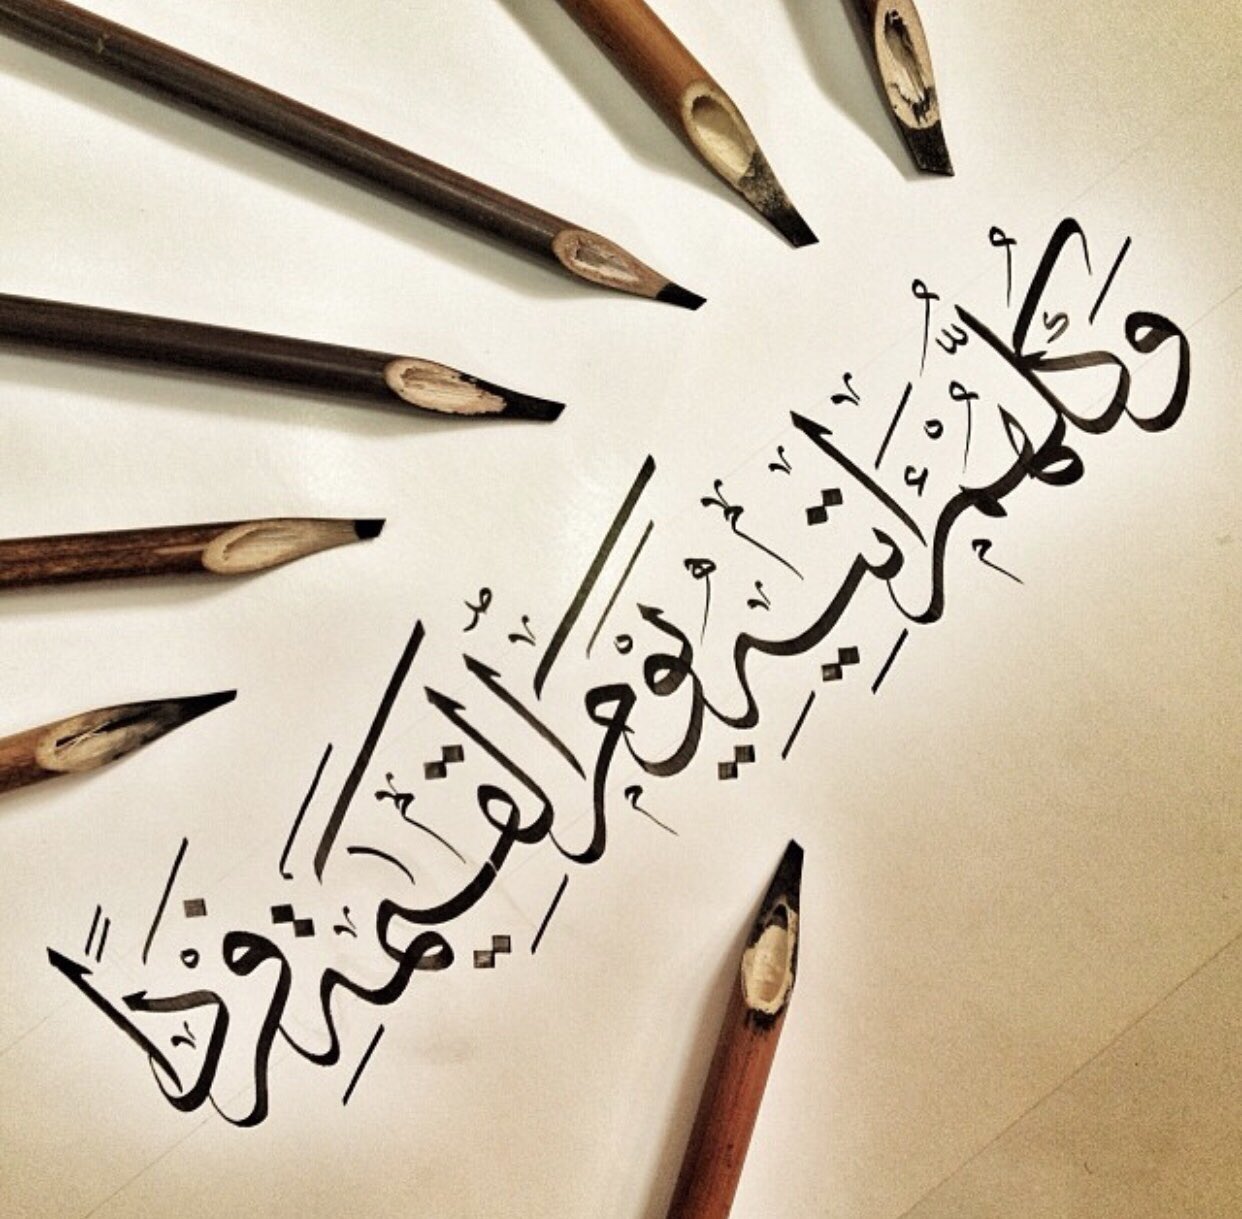 وَكُلُّهُمْ اٰتِيهِ يَوْمَ الْقِيٰمَةِ فَرْدًا